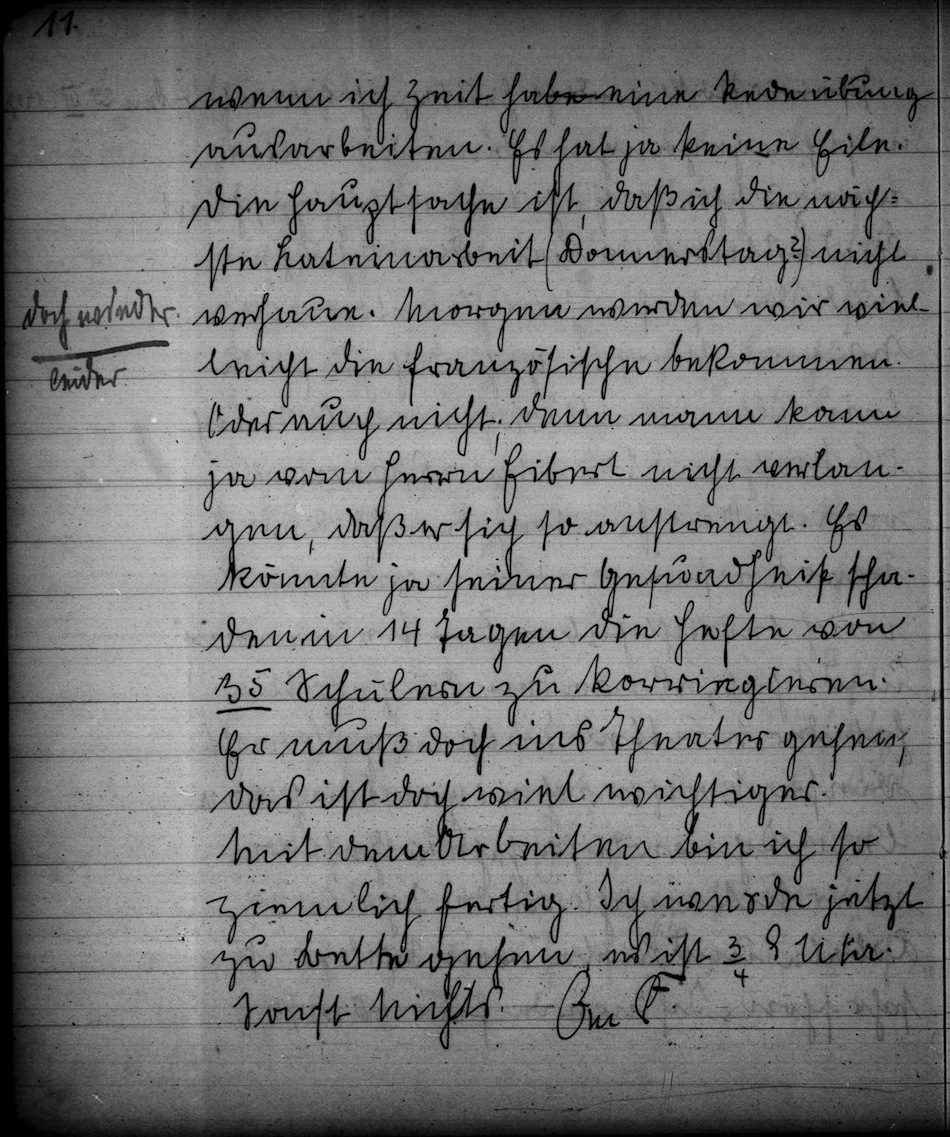 11.
wenn ich Zeit habe eine Redeübung
ausarbeiten. Es hat ja keine Eile.
Die Hauptsache ist, daß ich die näch=
ste Lateinarbeit (Donnerstag?) nicht
verhaue. Morgen werden wir viel-
leicht die französische bekommen.
Oder auch nicht; denn mann kann
ja vom Herrn Eibert nicht verlan-
gen, daß er sich so anstrengt. Es
könnte ja seiner Gesundheit scha-
den in 14 Tagen die Hefte von
35 Schülern zu korrigieren.
Er muß doch ins Theater gehen,
das ist doch viel wichtiger.
Mit dem Arbeiten bin ich so
ziemlich fertig. Ich werde jetzt
zu Bette gehen, es ist 3/4 9 Uhr.
Sonst Nichts.
doch
leider